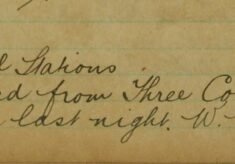 l Stations
ed from Three Co
last night. W.